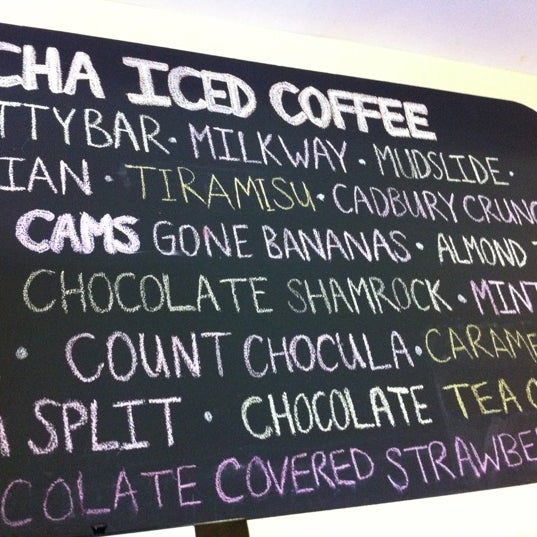 CHA ICED COFFEE
TTYBAR · MILKWAY · MUDSLIDE ·
IAN · TIRAMISU · CADBURY CRUNC
CAMS GONE BANANAS · ALMOND T
CHOCOLATE SHAMROCK · MINT
· COUNT CHOCULA · CARAME
A SPLIT · CHOCOLATE TEA C
COLATE COVERED STRAWBE